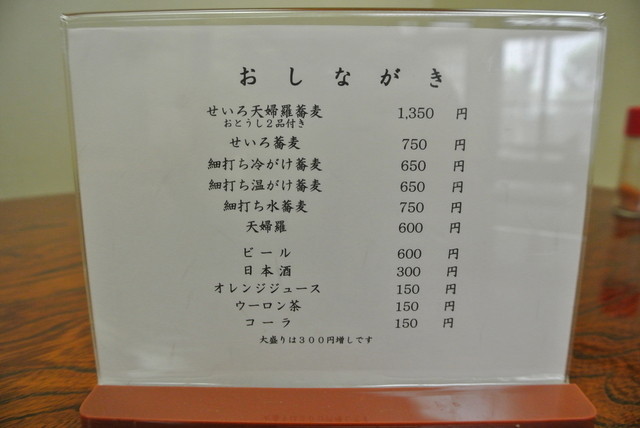 おしながき
せいろ天婦羅蕎麦 1,350 円
おとうし２品付き
せいろ蕎麦 750 円
細打ち冷がけ蕎麦 650 円
細打ち温がけ蕎麦 650 円
細打ち水蕎麦 750 円
天婦羅 600 円
ビール 600 円
日本酒 300 円
オレンジジュース 150 円
ウーロン茶 150 円
コーラ 150 円
大盛りは３００円増しです